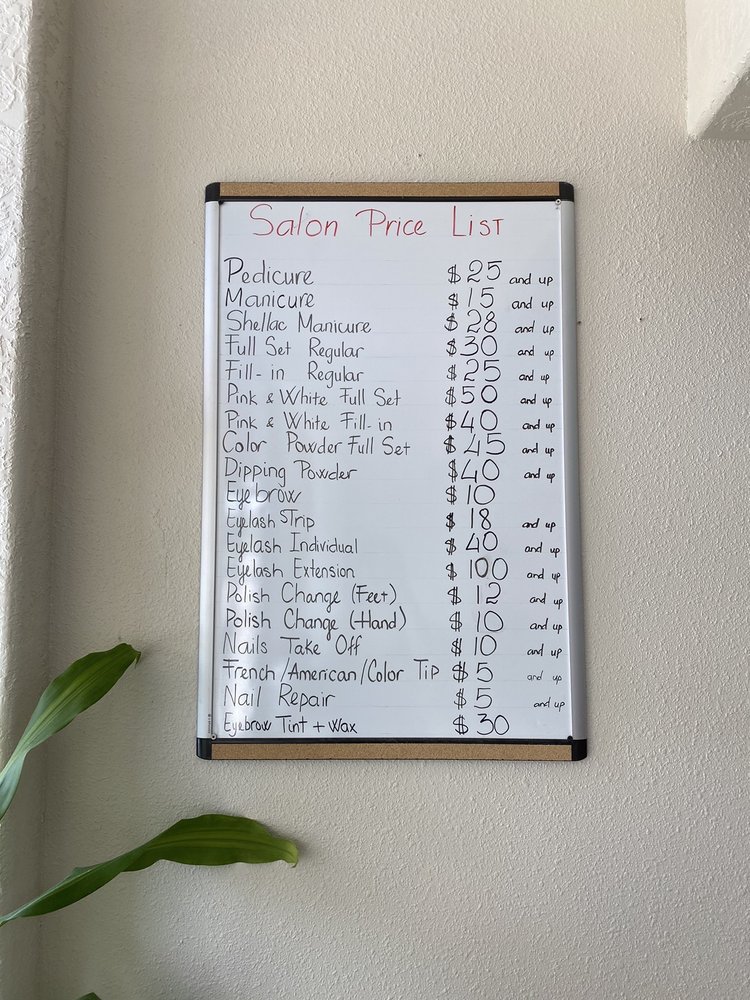 Salon Price List
Pedicure $25 and up
Manicure $15 and up
Shellac Manicure $28 and up
Full Set Regular $30 and up
Fill-in Regular $25 and up
Pink & White Full Set $50 and up
Pink & White Fill-in $40 and up
Color Powder Full Set $45 and up
Dipping Powder $40 and up
Eyebrow $10
Eyelash Strip $18 and up
Eyelash Individual $40 and up
Eyelash Extension $100 and up
Polish Change (Feet) $12 and up
Polish Change (Hand) $10 and up
Nails Take Off $10 and up
French/American/Color Tip $5 and up
Nail Repair $5 and up
Eyebrow Tint + Wax $30